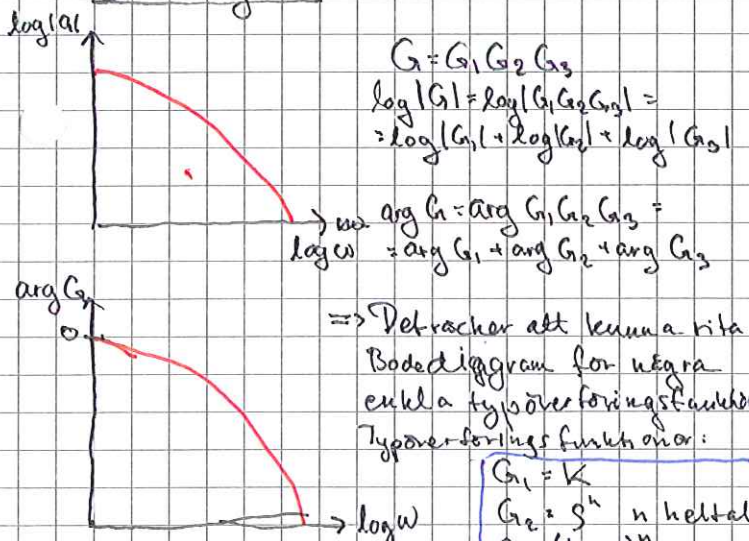 log|G|
G = G₁G₂G₃
log|G| = log|G₁G₂G₃| =
= log|G₁| + log|G₂| + log|G₃|
log ω
arg G = arg G₁G₂G₃ =
= arg G₁ + arg G₂ + arg G₃
arg G
0
log ω
=> Det räcker att kunna rita
Bodediagram för några
enkla typöverföringsfunktio
Typöverföringsfunktioner:
G₁ = K
G₂ = sⁿ n heltal